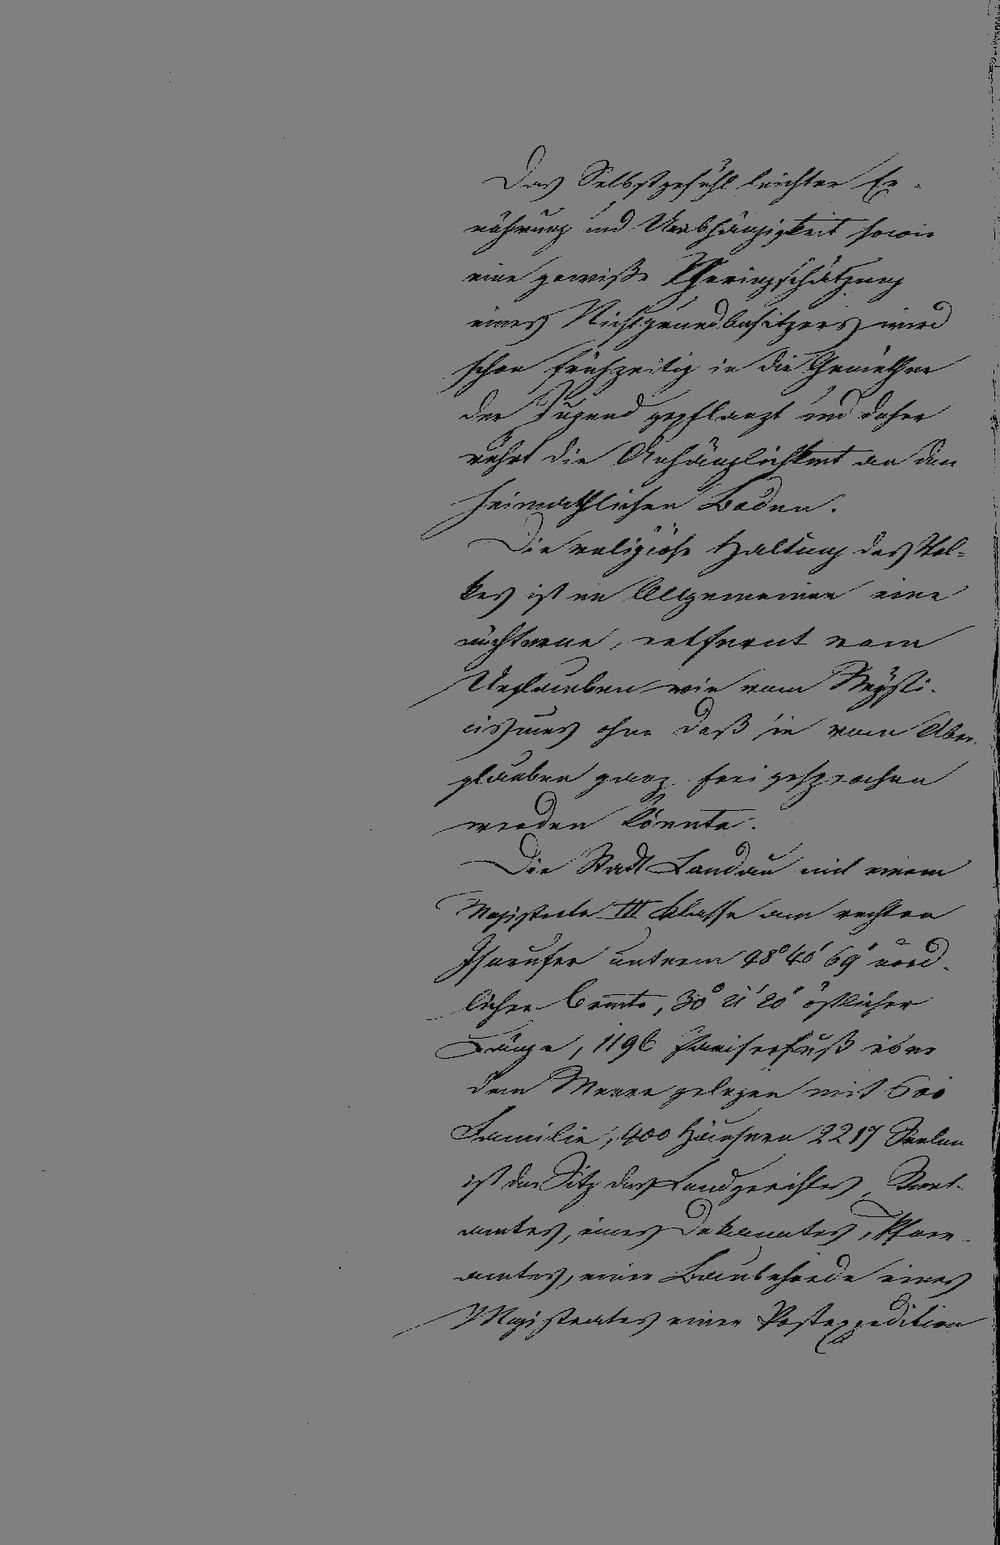 Das Selbstgefühl leichter Er-
nährung und Unabhängigkeit sowie
eine gewisse Geringschätzung
eines Nichtgrundbesitzers wird
schon frühzeitig in die Gemüther
der Jugend gepflanzt und daher
rührt die Anhänglichkeit an den
heimathlichen Boden.
Die religiöse Haltung des Vol-
kes ist im Allgemeinen eine
nüchterne, entfernt vom
Unglauben wie vom Mysti-
cismus ohne daß sie vom Aber-
glauben ganz frei gesprochen
werden könnte.
Die Stadt Landau mit einem
Magistrate III Klasse am rechten
Isarufer unterm 48° 40' 69" nörd-
licher Breite, 30° 21' 20" östlicher
Länge, 1196 Pariserfuß über
dem Meere gelegen mit 600
Familien, 400 Häusern 2217 Seelen
ist der Sitz des Landgerichtes, Rent-
amtes, eines Dekanates, Pfarr-
amtes, einer Baubehörde eines
Magistrates einer Postexpedition